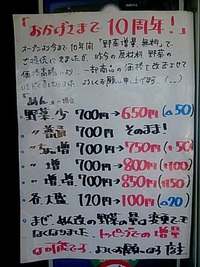 「おかげさまで10周年！」
オープンから今まで10年間「野菜増量無料」で
ご提供してきましたが、昨今の原材料 野菜の
価格高騰により、一部商品の価格を改正させて
いただきました。よろしくお願い申し上げます(..)
野菜少 700円→650円(-50)
〃 700円 そのまま！
700円→750円(+50)
〃 増 700円→800円(+100)
〃 増増 700円→850円(+150)
各大盛 120円→100円(-20)
野菜の量は変更でき
なくなりました。トッピングでの増量
は可能です。よろしくお願いします。店主